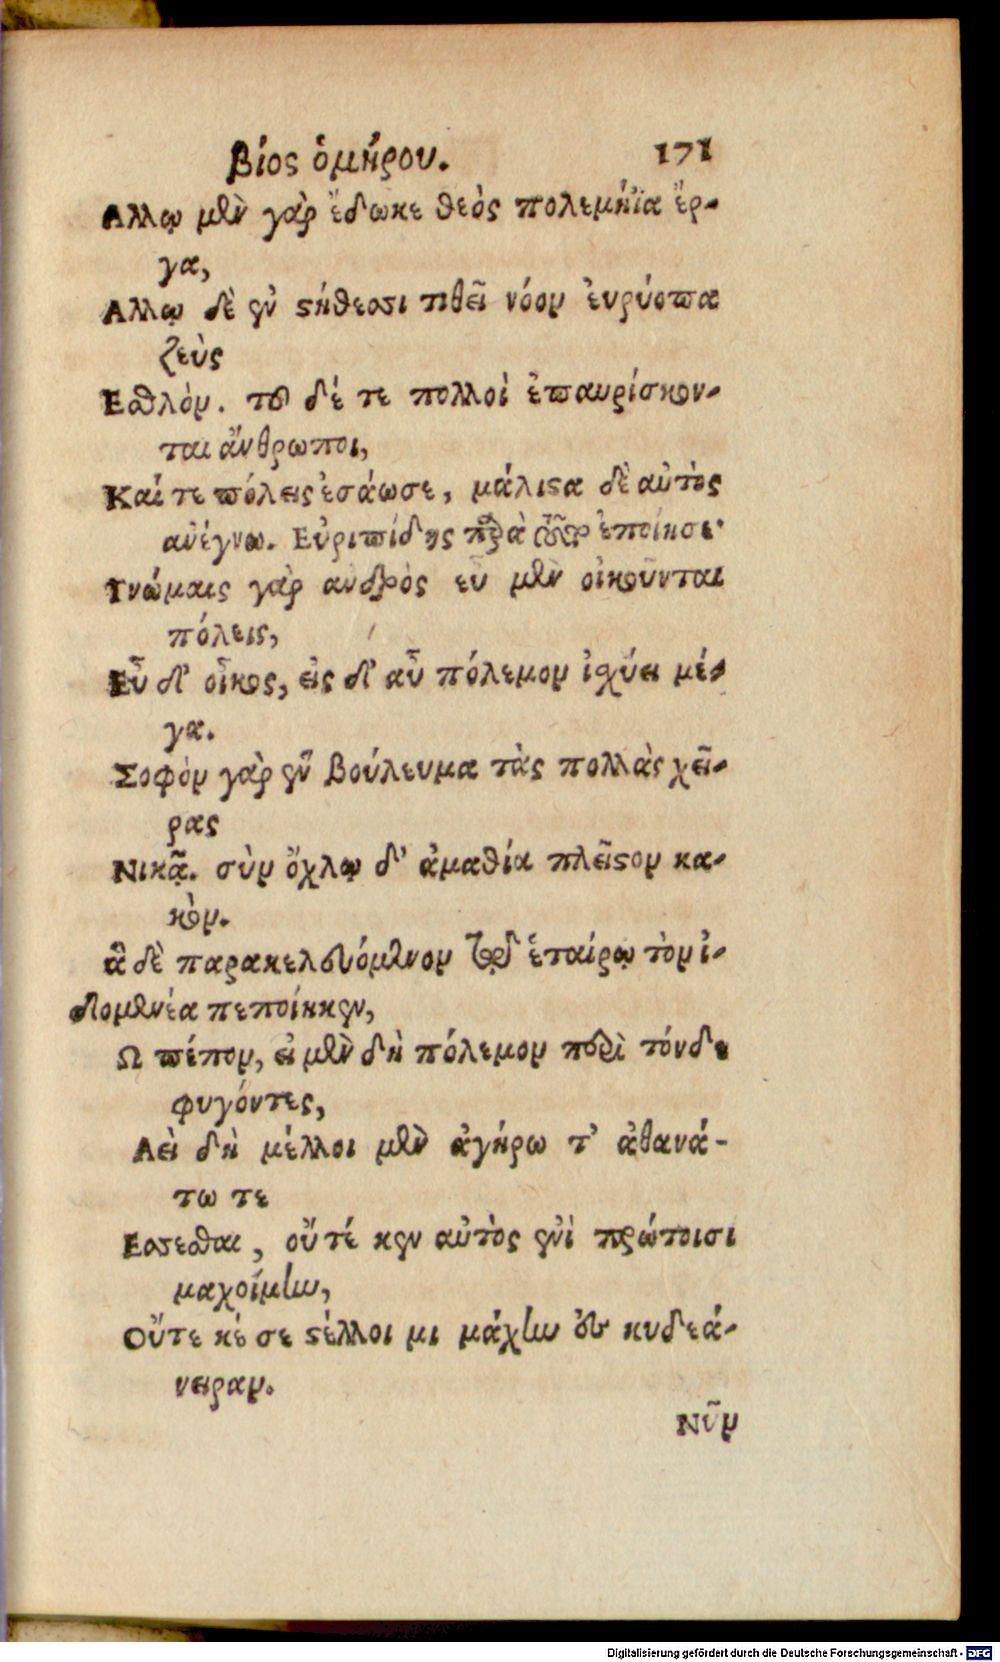 βίος ὁμήρου. 171
Αλλῳ μὲν γὰρ ἔδωκε θεὸς πολεμήϊα ἔρ-
γα,
Αλλῳ δὲ ἐν στήθεσσι τιθεῖ νόον ἐυρύοπα
ζεὺς
Εσθλὸν. τοῦ δέ τε πολλοὶ ἐπαυρίσκον-
ται ἄνθρωποι,
Καί τε πόλεις ἐσάωσε, μάλιστα δὲ αὐτὸς
ἀνέγνω. Εὐριπίδης παρὰ ἐποίησε·
Γνώμαις γὰρ ἀνδρὸς εὖ μὲν οἰκοῦνται
πόλεις,
Εὖ δ' οἶκος, εἰς δ' αὖ πόλεμον ἰσχύει μέ-
γα.
Σοφὸν γὰρ ἓν βούλευμα τὰς πολλὰς χεῖ-
ρας
Νικᾷ. σὺν ὄχλῳ δ' ἀμαθία πλεῖστον κα-
κὸν.
ἃ δὲ παρακελευόμενον τῷ ἑταίρῳ τὸν ἰ-
δομενέα πεποίηκεν,
Ω πέπον, εἰ μὲν δὴ πόλεμον περὶ τόνδε
φυγόντες,
Αεὶ δὴ μέλλοι μὲν ἀγήρω τ' ἀθανά-
τω τε
Εσσεσθαι, οὔτέ κεν αὐτὸς ἐνὶ πρώτοισι
μαχοίμην,
Οὔτε κέ σε στέλλοι μι μάχην ἐς κυδεά-
νειραν.
Νῦν
Digitalisierung gefördert durch die Deutsche Forschungsgemeinschaft - DFG